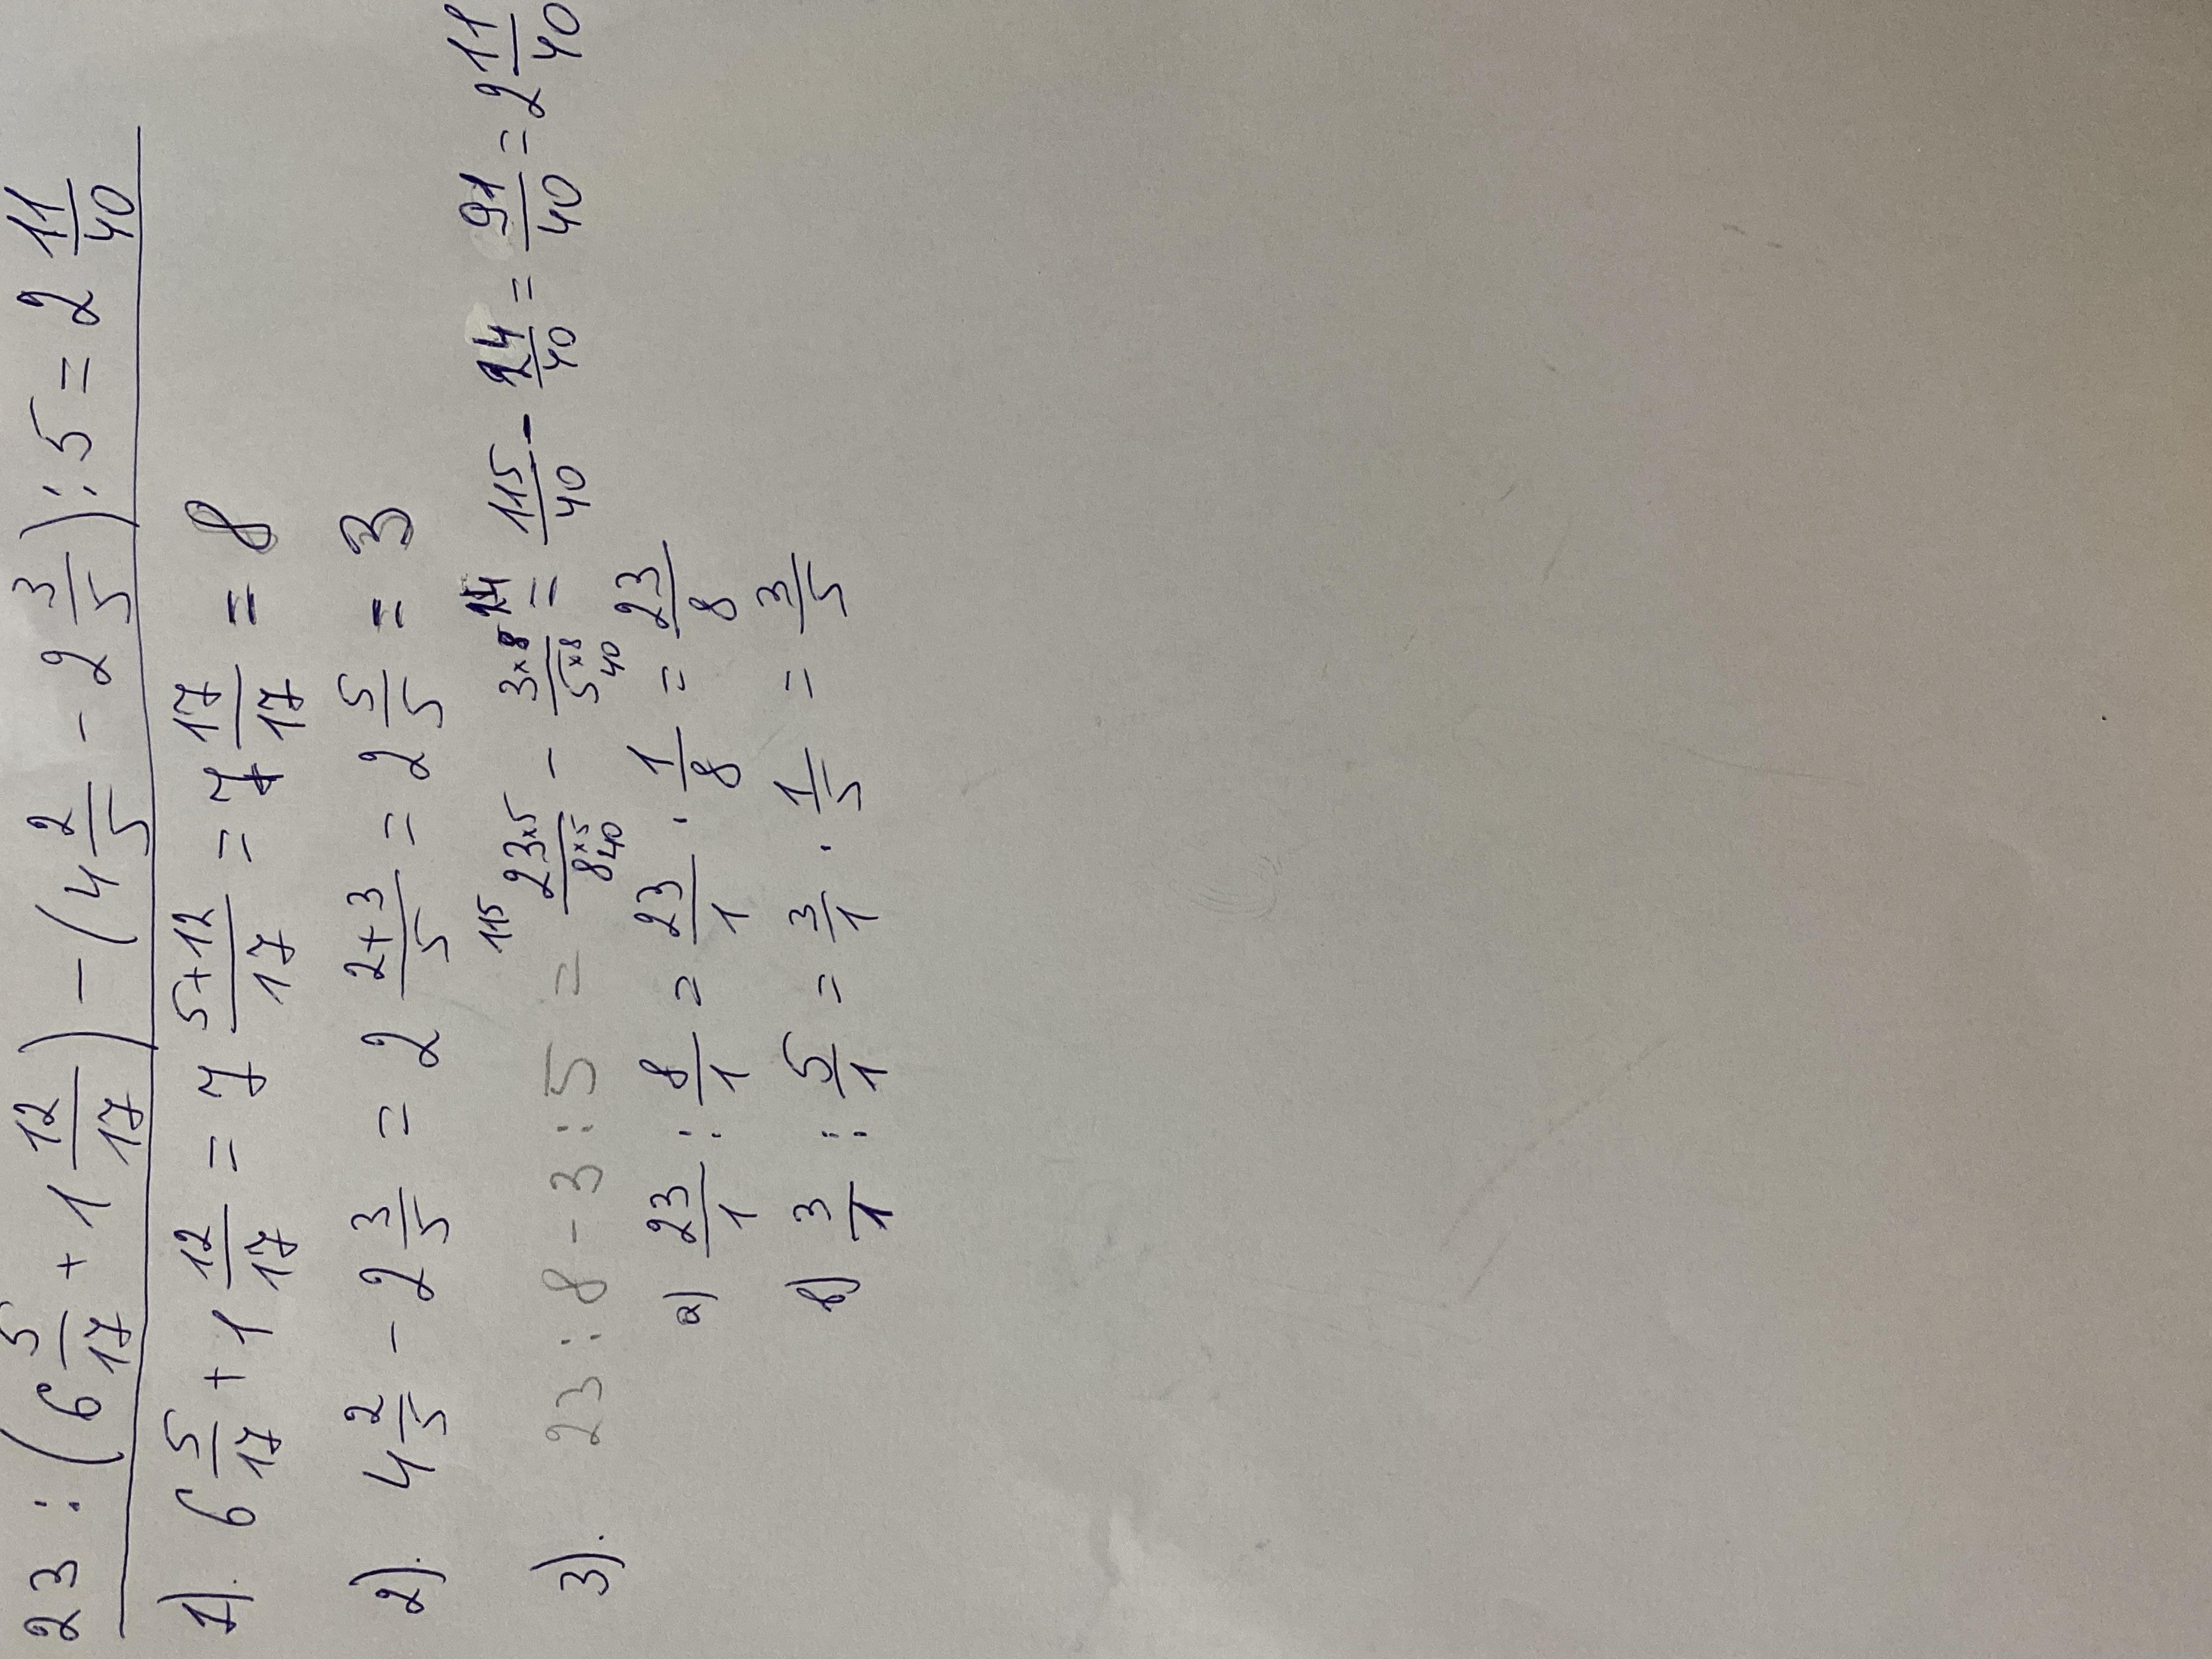 23 : (6 5/17 + 1 12/17) - (4 2/5 - 2 3/5) : 5 = 2 11/40
1). 6 5/17 + 1 12/17 = 7 5+12/17 = 7 17/17 = 8
2). 4 2/5 - 2 3/5 = 2 2+3/5 = 2 5/5 = 3
3). 23 : 8 - 3 : 5 = 115 23×5/8×5 40 - 3×8/5×8 40 24 = 115/40 - 24/40 = 91/40 = 2 11/40
a) 23/1 : 8/1 = 23/1 · 1/8 = 23/8
b) 3/1 : 5/1 = 3/1 · 1/5 = 3/5